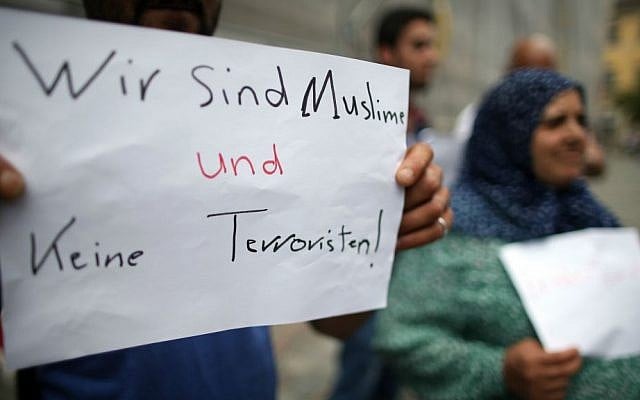 Wir sind Muslime
und
Keine Terroristen!